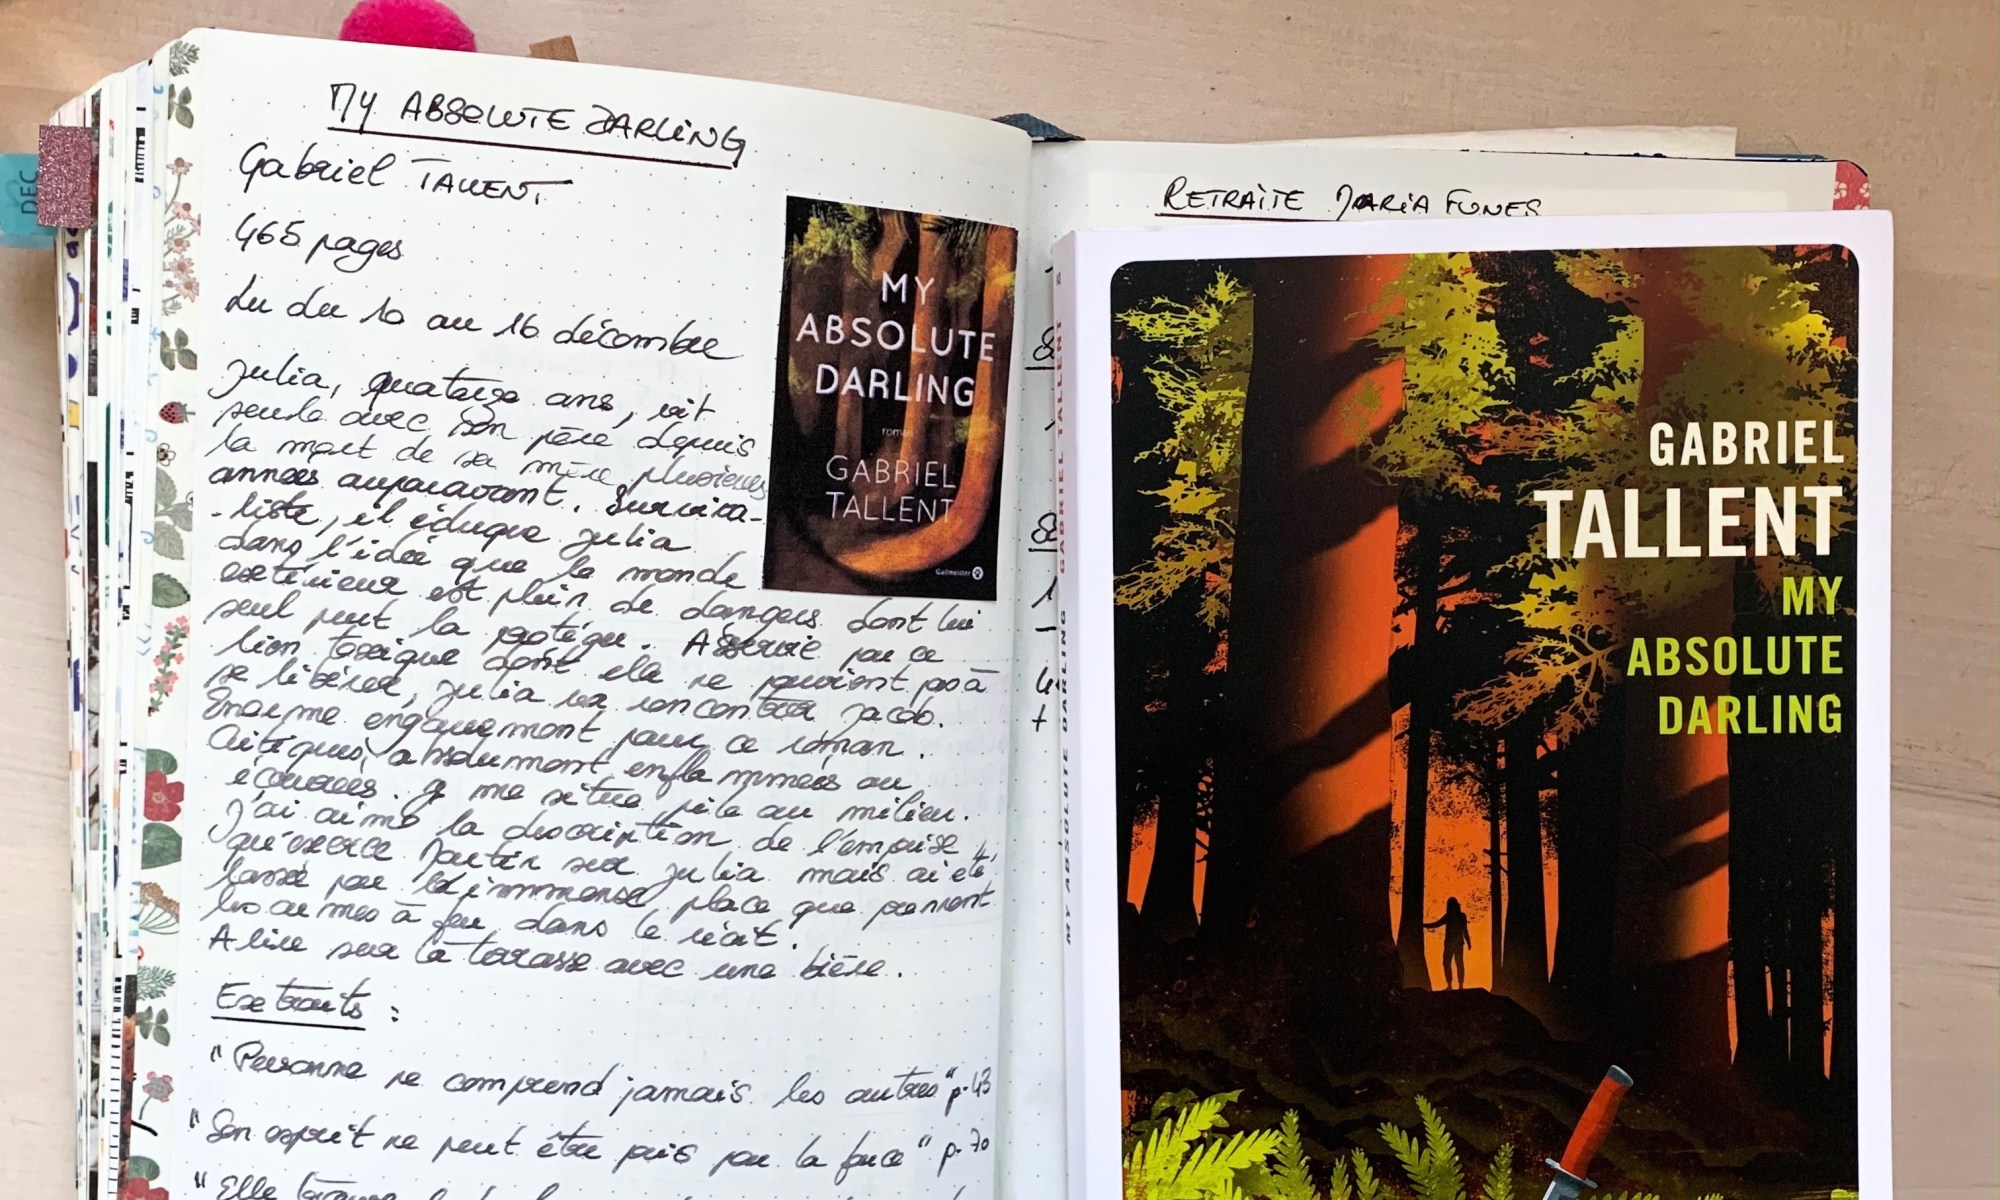 MY ABSOLUTE DARLING
Gabriel TALLENT
465 pages
Lu du 10 au 16 décembre
Julia, quatorze ans, vit
seule avec son père depuis
la mort de sa mère plusieurs
années auparavant. Surviva-
-liste, il éduque Julia
dans l'idée que le monde
extérieur est plein de dangers dont lui
seul peut la protéger. Asservie par ce
lien toxique dont elle ne parvient pas à
se libérer, Julia va rencontrer Jacob.
Enorme engouement pour ce roman.
Critiques absolument enflammées ou
écoeurées. Je me situe pile au milieu.
J'ai aimé la description de l'emprise
qu'exerce Martin sur Julia mais ai été
lassée par l'immense place que prennent
les armes à feu dans le récit.
A lire sur la terrasse avec une bière.
Extraits :
"Personne ne comprend jamais les autres" p.43
"Son esprit ne peut être pris par la force" p.70
"Elle
MY
ABSOLUTE
DARLING
roman
GABRIEL
TALLENT
Gallmeister
DEC
RETRAITE MARIA FUNES
MY ABSOLUTE DARLING GABRIEL TALLENT
GABRIEL
TALLENT
MY
ABSOLUTE
DARLING